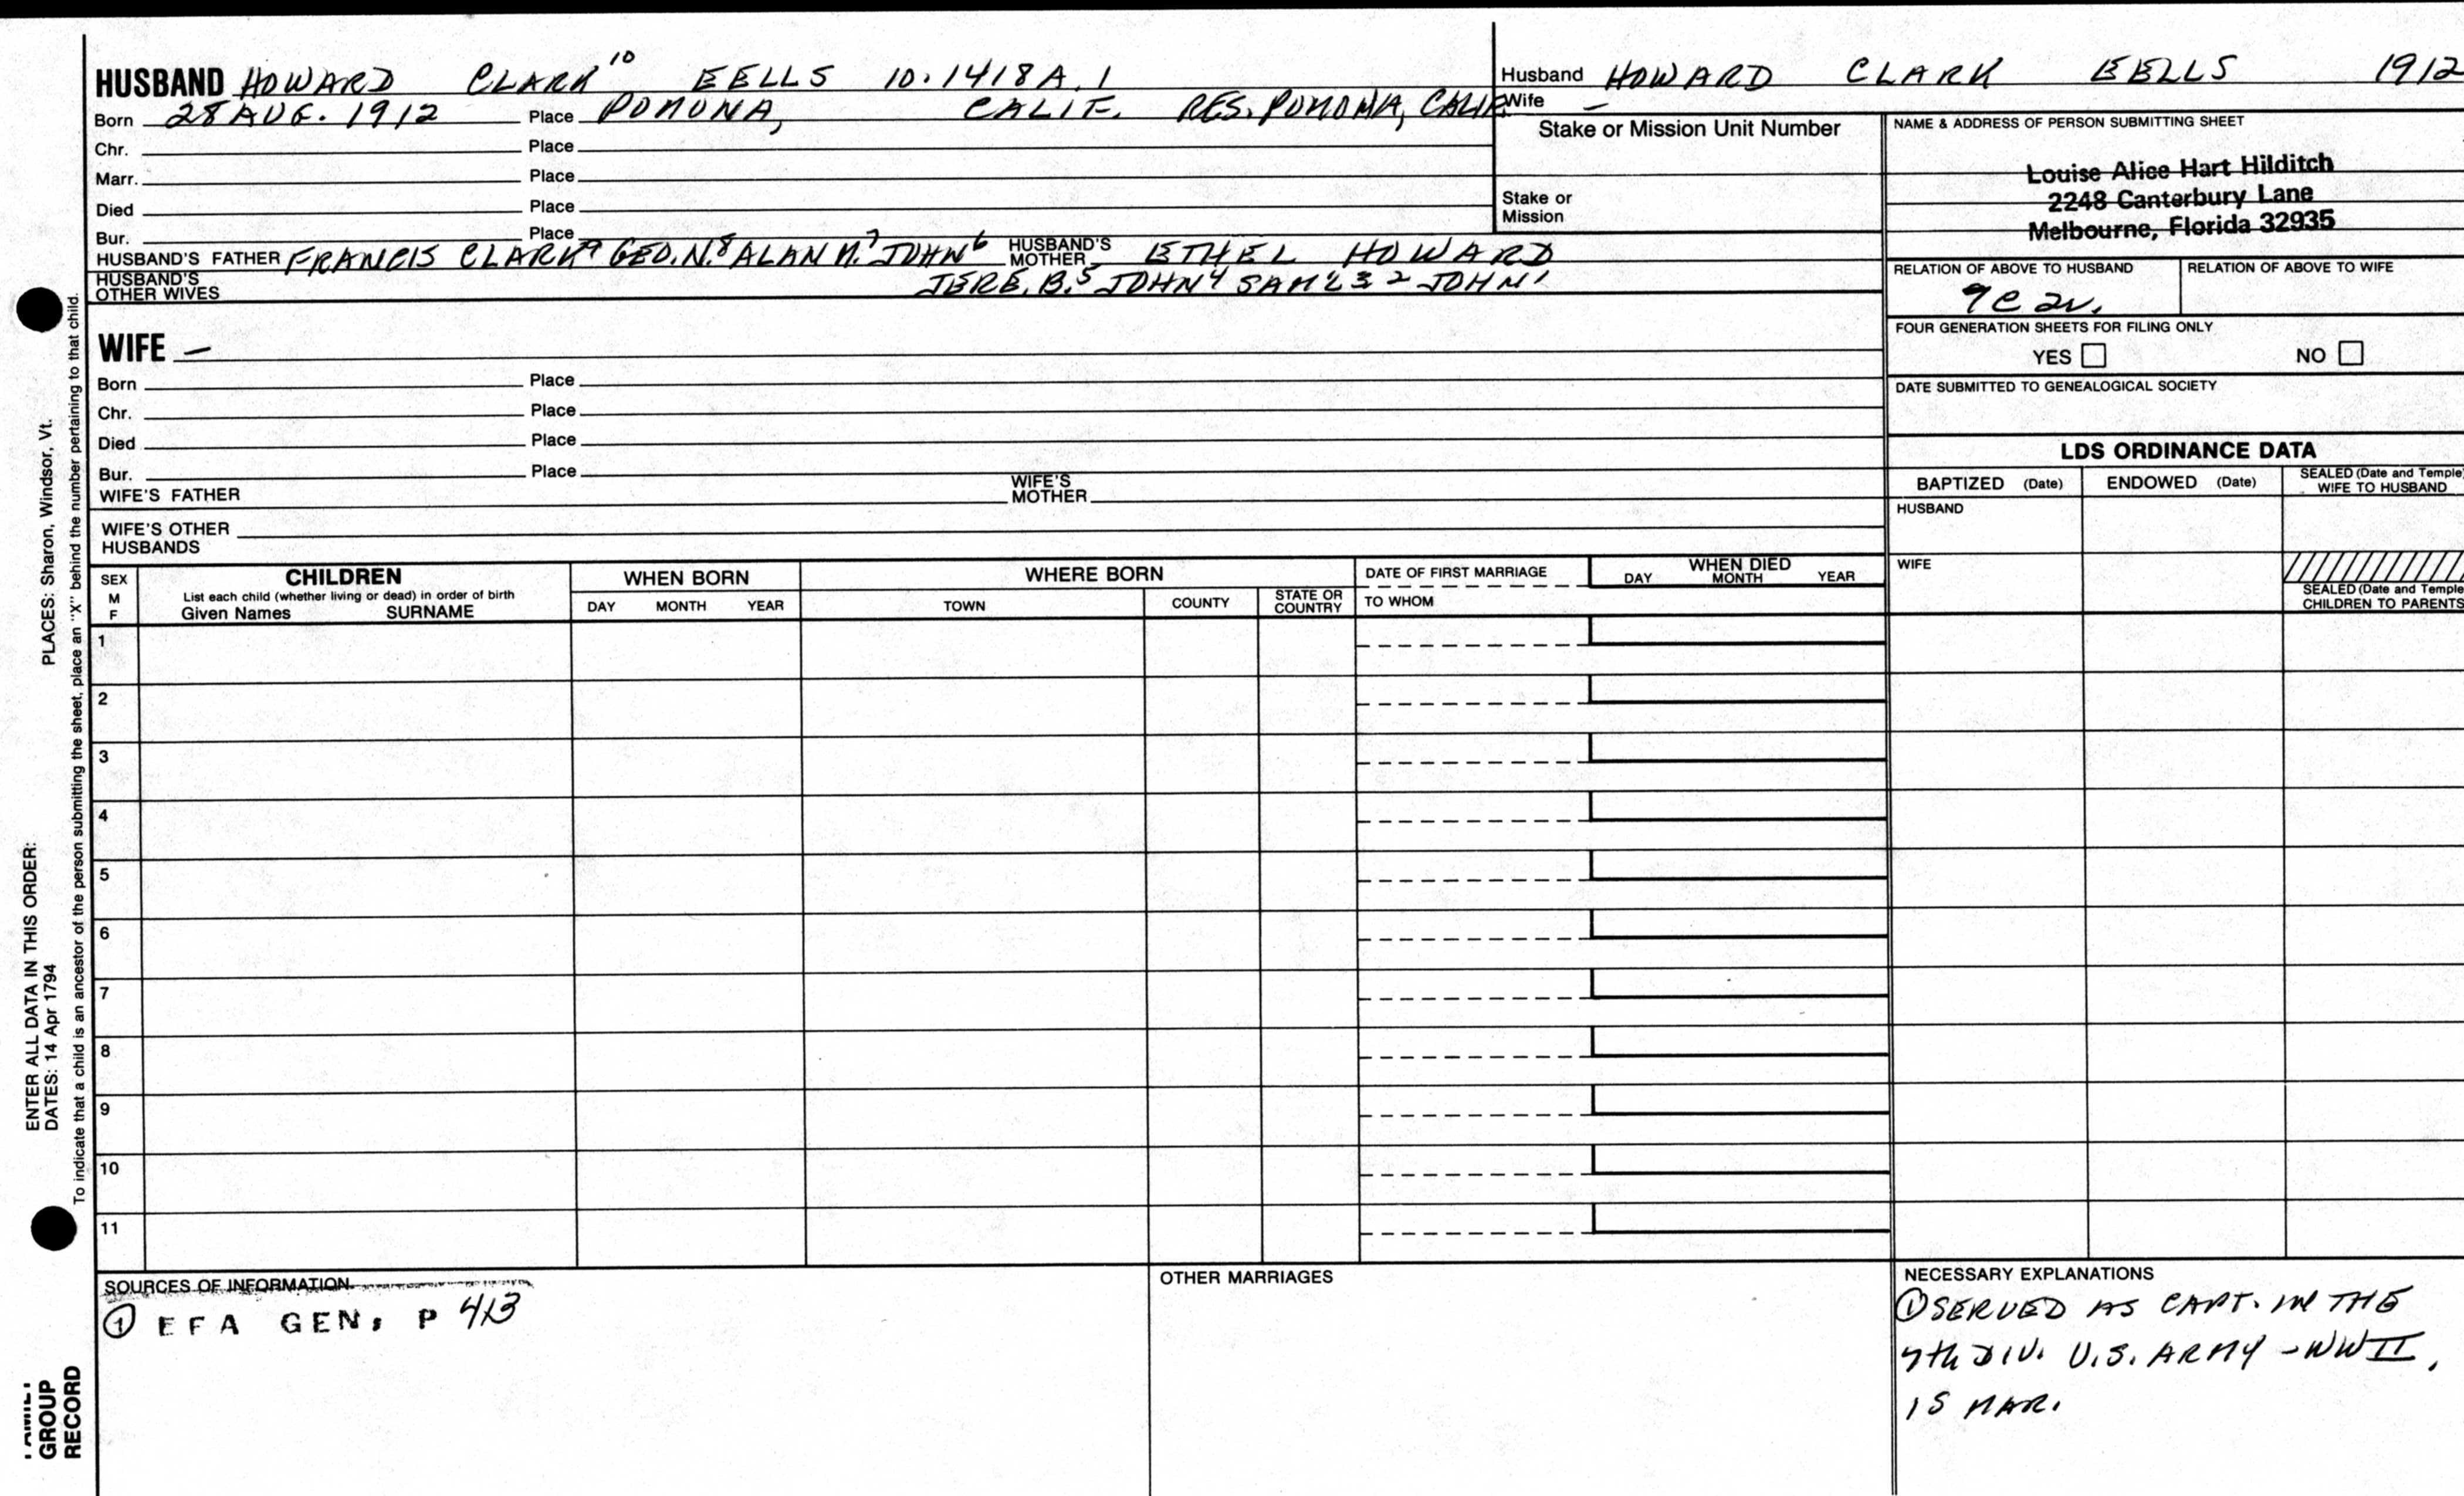 HUSBAND HOWARD CLARK¹⁰ EELLS 10.1418A.1
Born 28 AUG. 1912 Place POMONA, CALIF. RES. POMONA, CALIF.
Chr. Place
Marr. Place
Died Place
Bur. Place
HUSBAND'S FATHER FRANCIS CLARK⁹ GEO.N.⁸ ALAN N.⁷ JOHN⁶ HUSBAND'S MOTHER ETHEL HOWARD
HUSBAND'S OTHER WIVES JERE.B.⁵ JOHN⁴ SAM'L³ ² JOHN¹
Husband HOWARD CLARK EELLS 1912
Wife –
Stake or Mission Unit Number
Stake or Mission
NAME & ADDRESS OF PERSON SUBMITTING SHEET
Louise Alice Hart Hilditch
2248 Canterbury Lane
Melbourne, Florida 32935
RELATION OF ABOVE TO HUSBAND RELATION OF ABOVE TO WIFE
9C2R.
FOUR GENERATION SHEETS FOR FILING ONLY
YES NO
DATE SUBMITTED TO GENEALOGICAL SOCIETY
WIFE –
Born Place
Chr. Place
Died Place
Bur. Place
WIFE'S FATHER WIFE'S MOTHER
WIFE'S OTHER HUSBANDS
LDS ORDINANCE DATA
BAPTIZED (Date) ENDOWED (Date) SEALED (Date and Temple) WIFE TO HUSBAND
HUSBAND
WIFE
SEALED (Date and Temple CHILDREN TO PARENTS
SEX M F
CHILDREN
List each child (whether living or dead) in order of birth
Given Names SURNAME
WHEN BORN
DAY MONTH YEAR
WHERE BORN
TOWN COUNTY STATE OR COUNTRY
DATE OF FIRST MARRIAGE
TO WHOM
WHEN DIED
DAY MONTH YEAR
1
2
3
4
5
6
7
8
9
10
11
SOURCES OF INFORMATION
① EFA GEN, P 413
OTHER MARRIAGES
NECESSARY EXPLANATIONS
① SERVED AS CAPT. IN THE
7th DIV. U.S. ARMY - WWII,
IS MAR.
PLACES: Sharon, Windsor, Vt.
To indicate that a child is an ancestor of the person submitting the sheet, place an "X" behind the number pertaining to that child.
ENTER ALL DATA IN THIS ORDER:
DATES: 14 Apr 1794
GROUP
RECORD